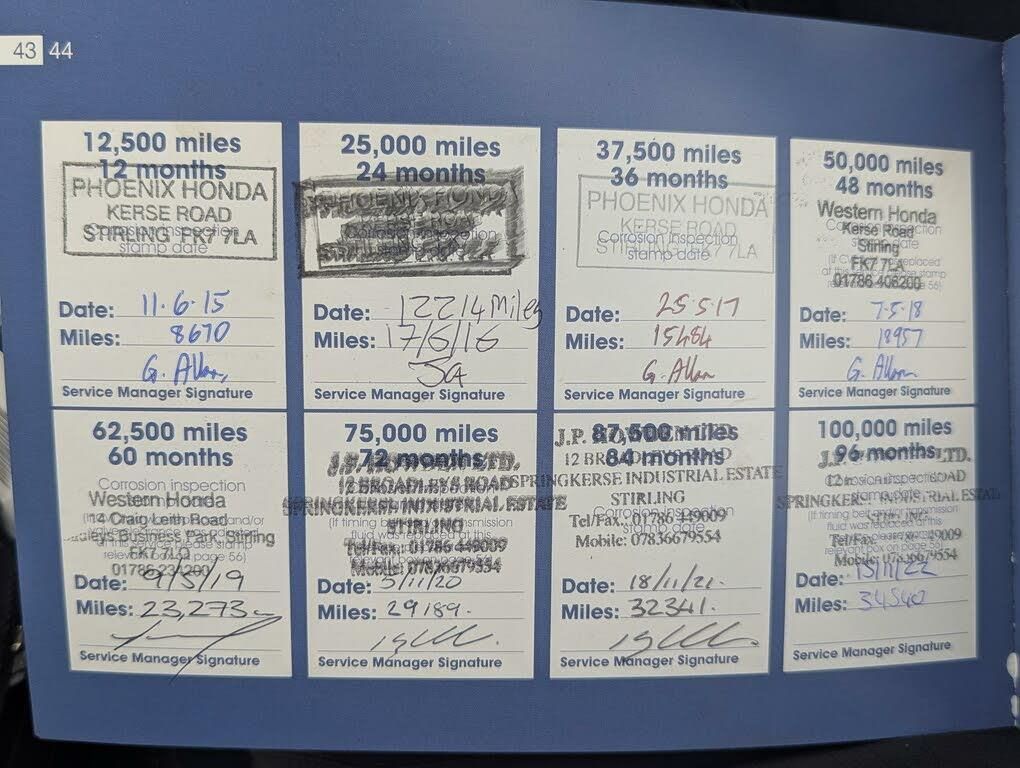 43 44
12,500 miles
12 months
PHOENIX HONDA
KERSE ROAD
STIRLING FK7 7LA
Corrosion inspection
stamp date
Date: 11.6.15
Miles: 8670
G. Allan
Service Manager Signature
25,000 miles
24 months
PHOENIX HONDA
12214 miles
Date: 17/6/16
Miles:
JA
Service Manager Signature
37,500 miles
36 months
PHOENIX HONDA
KERSE ROAD
STIRLING FK7 7LA
Corrosion inspection
stamp date
Date: 25.5.17
Miles: 15484
G. Allan
Service Manager Signature
50,000 miles
48 months
Western Honda
Kerse Road
Stirling
FK7 7LA
01786 408200
Date: 7.5.18
Miles: 18957
G. Allan
Service Manager Signature
62,500 miles
60 months
Corrosion inspection
Western Honda
14 Craig Leith Road
Business Park, Stirling
FK7 7LQ
01786 234200
Date: 9/5/19
Miles: 23,273
Service Manager Signature
75,000 miles
72 months
12 BROADLEYS ROAD
SPRINGKERSE INDUSTRIAL ESTATE
STIRLING
Tel/Fax: 01786 449009
Mobile: 07836679554
Date: 5/11/20
Miles: 29189.
Service Manager Signature
87,500 miles
84 months
J.P. LTD
12 BROADLEYS ROAD
SPRINGKERSE INDUSTRIAL ESTATE
STIRLING
Corrosion inspection
stamp date
Tel/Fax: 01786 449009
Mobile: 07836679554
Date: 18/11/21.
Miles: 32341.
Service Manager Signature
100,000 miles
96 months
J.P. LTD.
ROAD
SPRINGKERSE INDUSTRIAL ESTATE
Tel/Fax: 49009
Mobile: 07836679554
Date: 15/11/22
Miles: 34540
Service Manager Signature